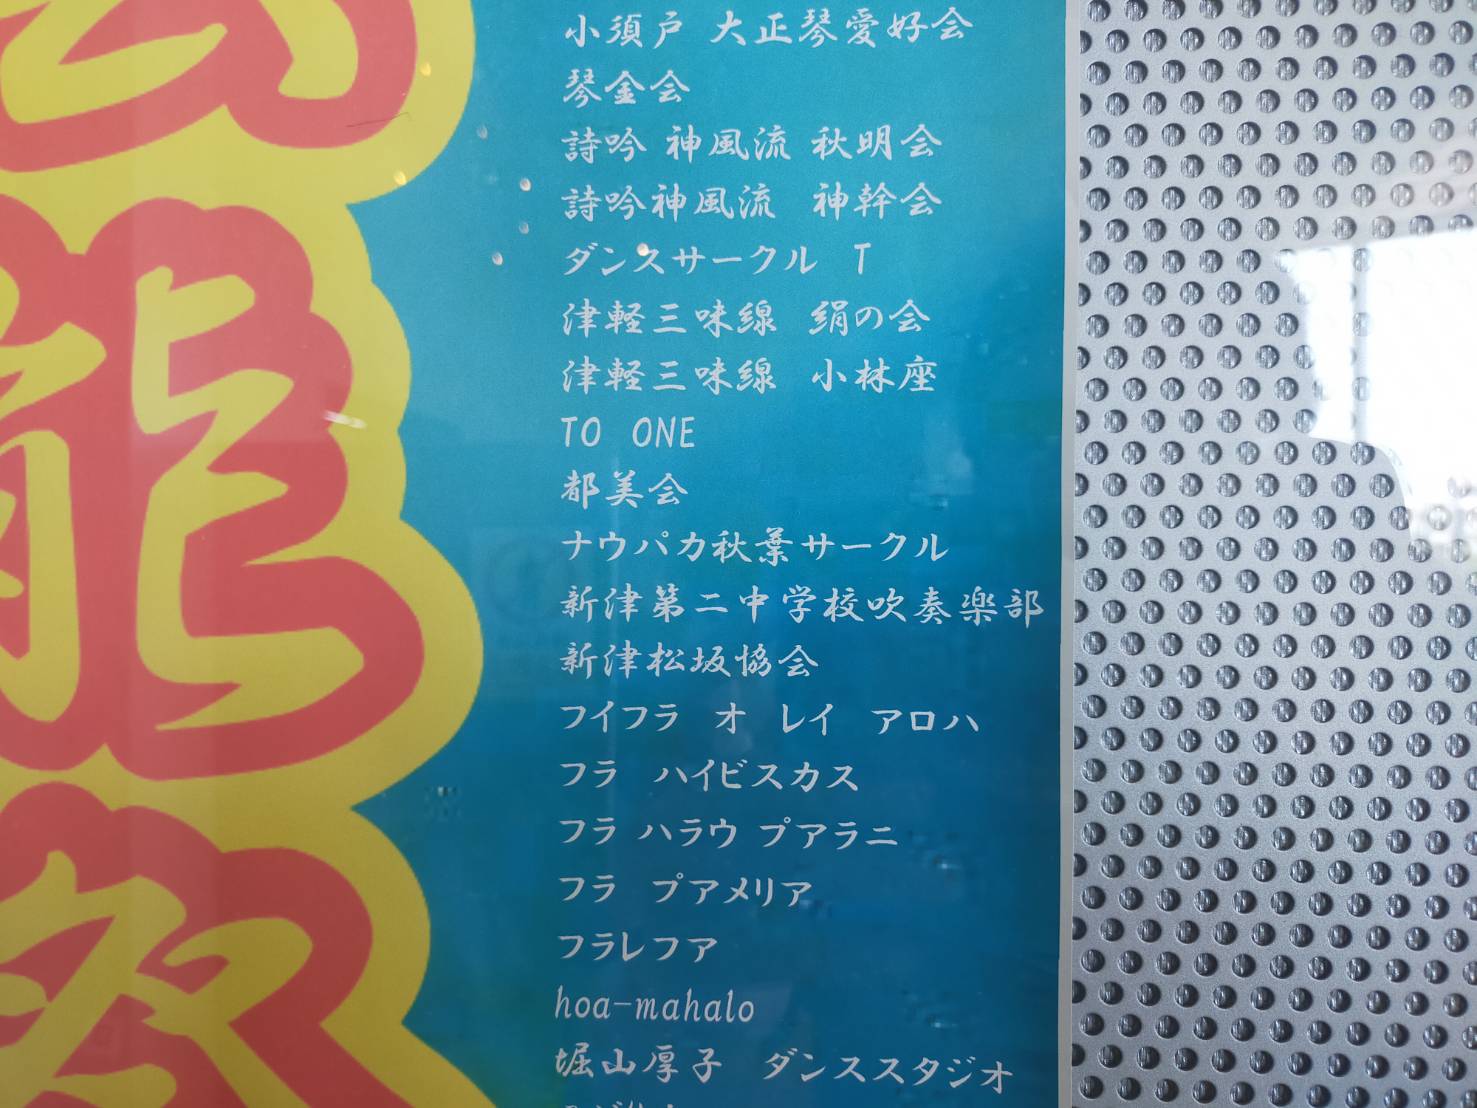 能
祭
小須戸 大正琴愛好会
琴金会
詩吟 神風流 秋明会
詩吟神風流 神幹会
ダンスサークル T
津軽三味線 絹の会
津軽三味線 小林座
TO ONE
都美会
ナウパカ秋葉サークル
新津第二中学校吹奏楽部
新津松坂協会
フイフラ オ レイ アロハ
フラ ハイビスカス
フラ ハラウ プアラニ
フラ プアメリア
フラレフア
hoa-mahalo
堀山厚子 ダンススタジオ